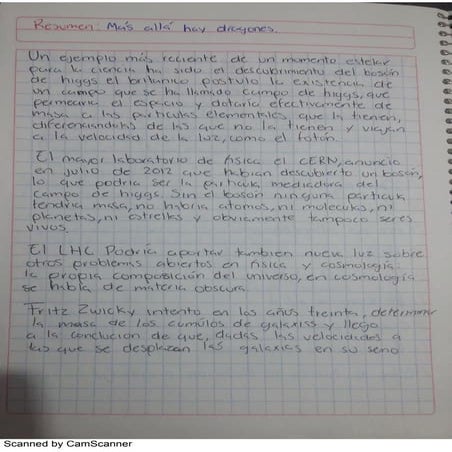 Resumen: Más allá hay dragones.
Un ejemplo más reciente de un momento estelar
para la ciencia ha sido el descubrimento del bosón
de higgs el britanico postulo la existencia de
un campo que se ha llamado campo de higgs, que
permearia el espacio y dotaria efectivamente de
masa a las particulas elementales, que la tienen,
diferenciandolas de las que no la tienen y viajan
a la velocidad de la luz, como el fotón.
El mayor laboratorio de física el CERN, anuncio
en julio de 2012 que habian descubierto un bosón,
lo que podria ser la particula mediadora del
campo de higgs. Sin el bosón ninguna particula
tendria masa, no habria atomos, ni moleculas, ni
planetas, ni estrellas y obviamente tampoco seres
vivos.
El LHC Podría aportar tambien nueva luz sobre
otros problemas abiertos en física y cosmología
la propia composición del universo, en cosmología
se habla de materia obscura.
Fritz Zwicky intento en los años treinta, determinar
la masa de los cumulos de galaxias y llego
a la conclucion de que, dadas las velocidades a
las que se desplazan las galaxias en su seno
Scanned by CamScanner